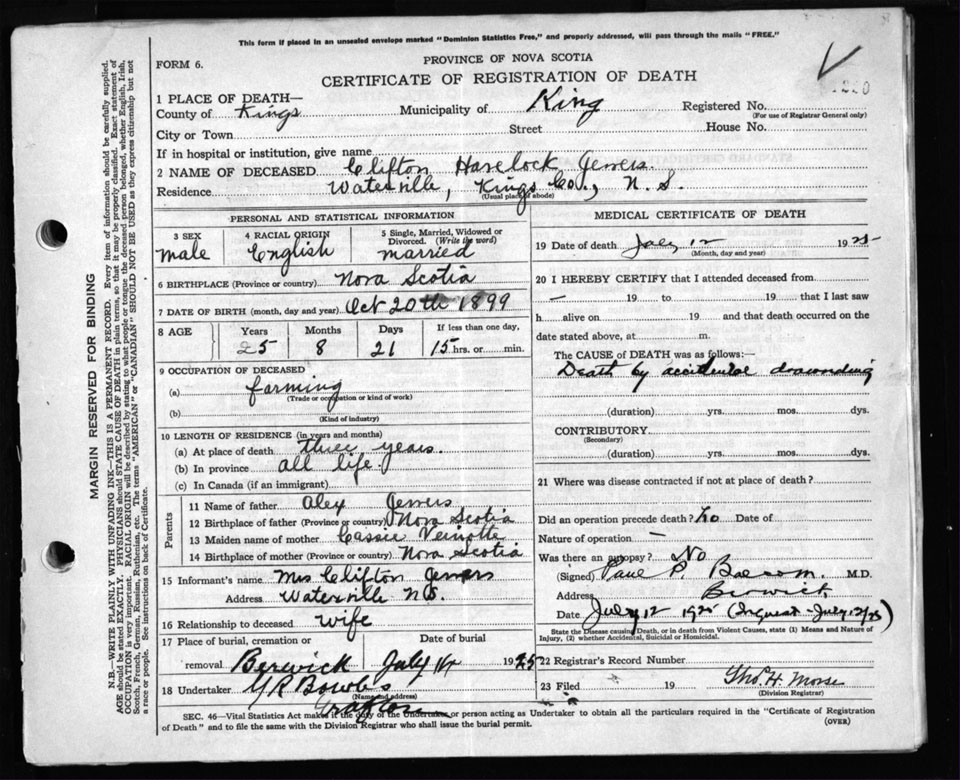 This form if placed in an unsealed envelope marked "Dominion Statistics Free," and properly addressed, will pass through the mails "FREE."
FORM 6.
PROVINCE OF NOVA SCOTIA
CERTIFICATE OF REGISTRATION OF DEATH
1 PLACE OF DEATH—
County of Kings Municipality of King Registered No.
(For use of Registrar General only)
City or Town Street House No.
If in hospital or institution, give name
2 NAME OF DECEASED Clifton Havelock Jewers
Residence Waterville, Kings Co., N. S.
(Usual place of abode)
PERSONAL AND STATISTICAL INFORMATION
3 SEX 4 RACIAL ORIGIN 5 Single, Married, Widowed or
Divorced. (Write the word)
male English married
6 BIRTHPLACE (Province or country) Nova Scotia
7 DATE OF BIRTH (month, day and year) Oct 20th 1899
8 AGE Years Months Days If less than one day,
25 8 21 15 hrs. or min.
9 OCCUPATION OF DECEASED
(a) farming
(Trade or occupation or kind of work)
(b)
(Kind of industry)
10 LENGTH OF RESIDENCE (in years and months)
(a) At place of death three years.
(b) In province all life.
(c) In Canada (if an immigrant)
Parents
11 Name of father Alex Jewers
12 Birthplace of father (Province or country) Nova Scotia
13 Maiden name of mother Cassie Veinotte
14 Birthplace of mother (Province or country) Nova Scotia
15 Informant's name Mrs Clifton Jewers
Address Waterville N.S.
16 Relationship to deceased wife
17 Place of burial, cremation or Date of burial
removal Berwick July 14 1925
18 Undertaker Bowles
(Name and address)
Grafton
MEDICAL CERTIFICATE OF DEATH
19 Date of death July 12 1925
(Month, day and year)
20 I HEREBY CERTIFY that I attended deceased from
— 19 to 19 that I last saw
h alive on 19 and that death occurred on the
date stated above, at m.
The CAUSE OF DEATH was as follows:—
Death by accidental drownding
(duration) yrs. mos. dys.
CONTRIBUTORY
(Secondary)
(duration) yrs. mos. dys.
21 Where was disease contracted if not at place of death?
Did an operation precede death? no Date of
Nature of operation —
Was there an autopsy? No
(Signed) Paul P. Balcom. M.D.
Address Berwick
Date July 12 1925 (Inquest - July 12/25)
State the Disease causing Death, or in death from Violent Causes, state (1) Means and Nature of
Injury, (2) whether Accidental, Suicidal or Homicidal.
22 Registrar's Record Number
23 Filed 19 Tho. H. Morse
(Division Registrar)
SEC. 46—Vital Statistics Act makes it the duty of the Undertaker or person acting as Undertaker to obtain all the particulars required in the "Certificate of Registration
of Death" and to file the same with the Division Registrar who shall issue the burial permit.
(OVER)
MARGIN RESERVED FOR BINDING
N.B.—WRITE PLAINLY WITH UNFADING INK—THIS IS A PERMANENT RECORD. Every item of information should be carefully supplied.
AGE should be stated EXACTLY. PHYSICIANS should STATE CAUSE OF DEATH in plain terms, so that it may be properly classified. Exact statement of
OCCUPATION is very important. RACIAL ORIGIN will be described by stating to what people or tongue the deceased person belonged, whether English, Irish,
Scotch, French, German, Russian, Ruthenian, etc. The terms "AMERICAN" or "CANADIAN" SHOULD NOT BE USED as they express citizenship but not
a race or people. See instructions on back of Certificate.